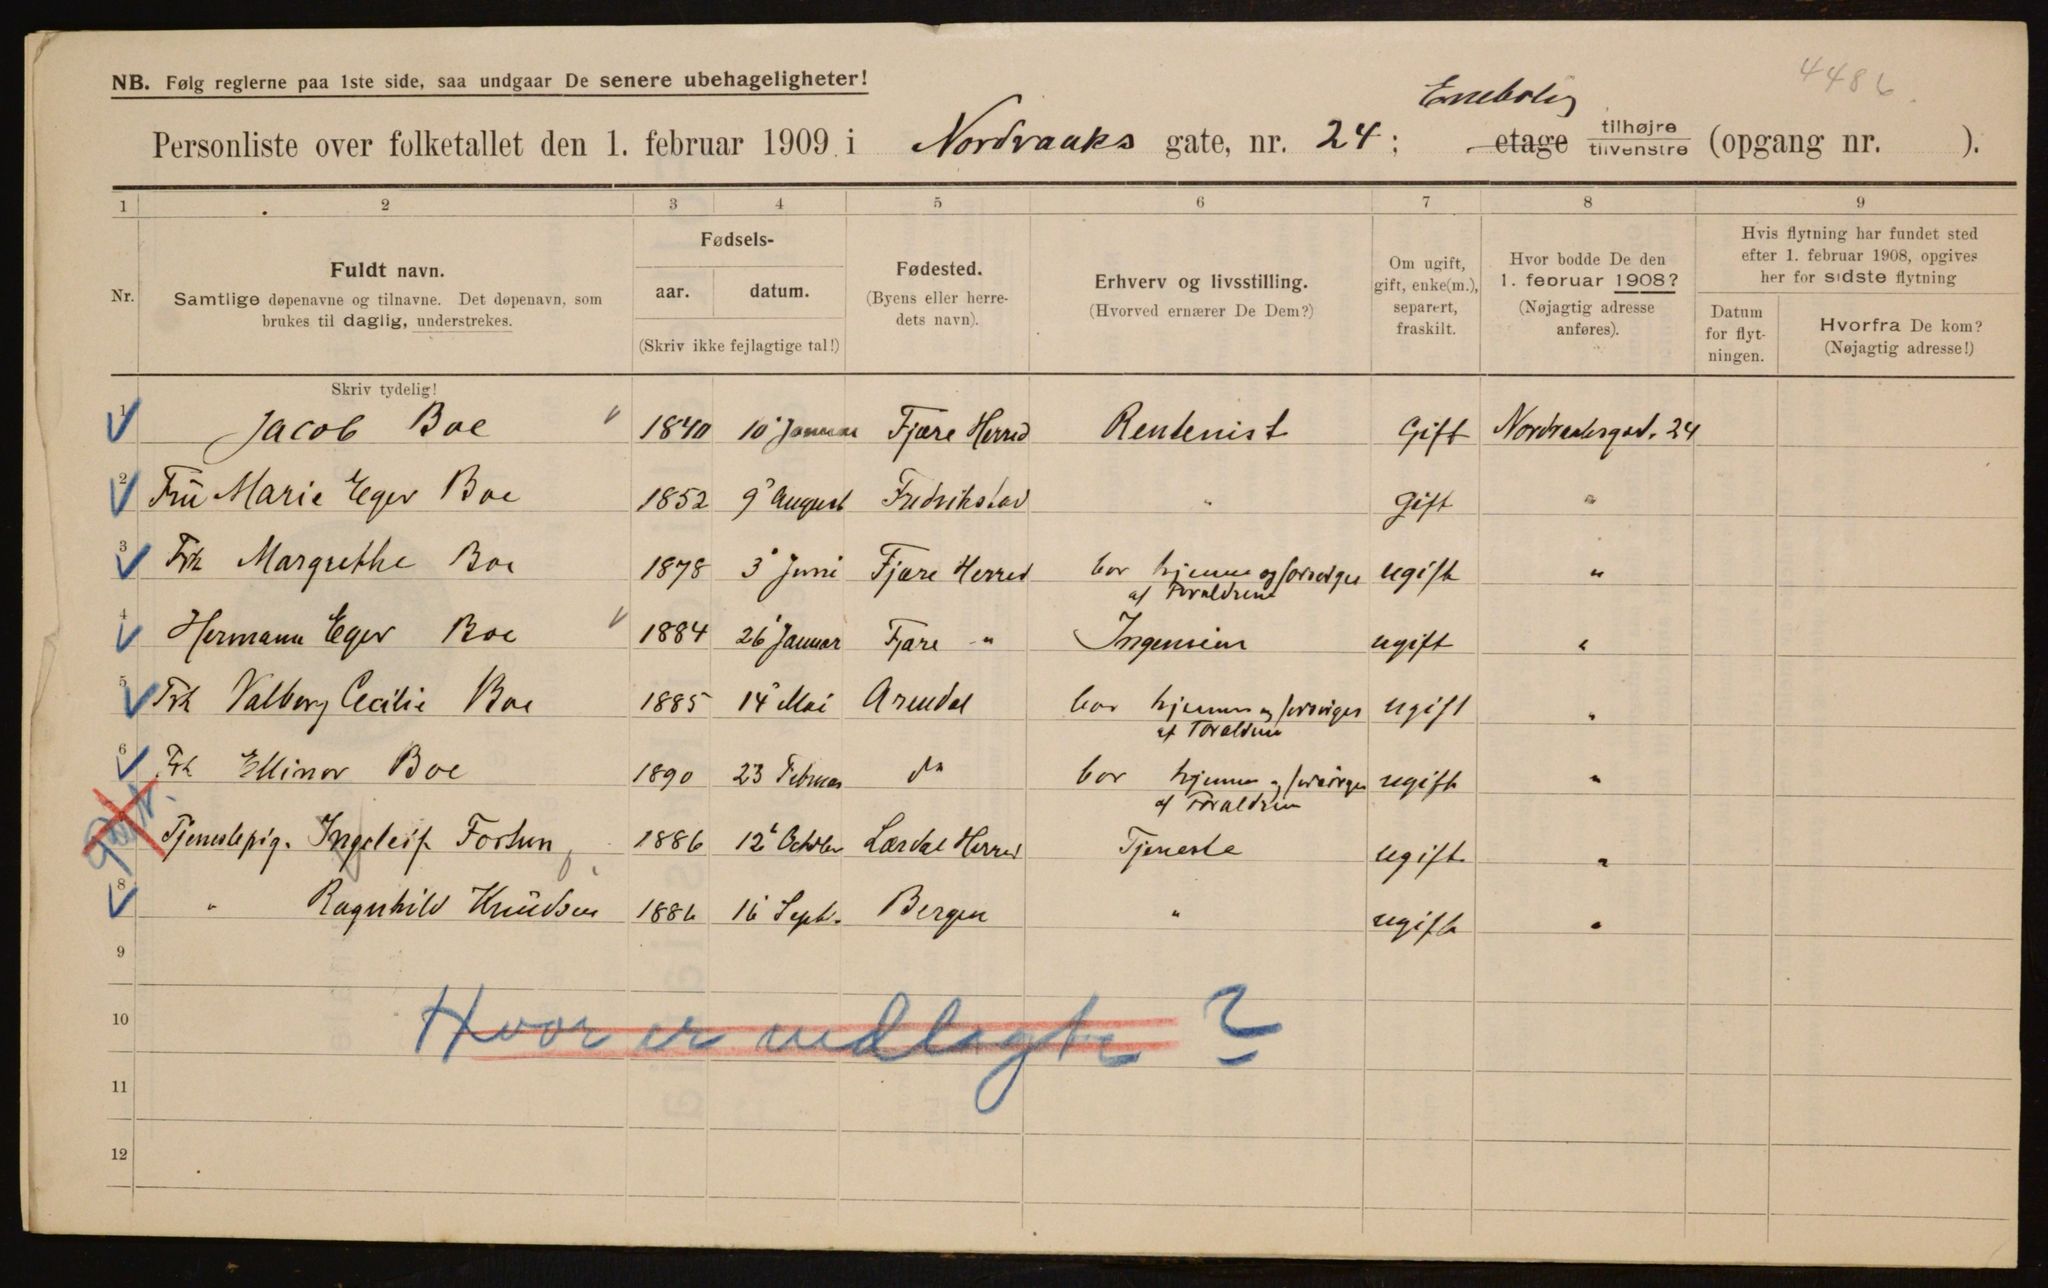 4486
NB. Følg reglerne paa 1ste side, saa undgaar De senere ubehageligheter!
Enebolig
Personliste over folketallet den 1. februar 1909 i Nordraaks gate, nr. 24; etage tilhøjre tilvenstre (opgang nr. ).
1 2 3 4 5 6 7 8 9
Nr.
Fuldt navn.
Samtlige døpenavne og tilnavne. Det døpenavn, som
brukes til daglig, understrekes.
Fødsels-
aar. datum.
(Skriv ikke fejlagtige tal!)
Fødested.
(Byens eller herre-
dets navn).
Erhverv og livsstilling.
(Hvorved ernærer De Dem?)
Om ugift,
gift, enke(m.),
separert,
fraskilt.
Hvor bodde De den
1. februar 1908?
(Nøjagtig adresse
anføres).
Hvis flytning har fundet sted
efter 1. februar 1908, opgives
her for sidste flytning
Datum
for flyt-
ningen.
Hvorfra De kom?
(Nøjagtig adresse!)
Skriv tydelig!
1 Jacob Boe 1840 10 Januar Fjære Herred Rentenist Gift Nordraaksgad. 24
2 Frū Marie Eger Boe 1852 9 August Fredrikstad " gift "
3 Frk Margrethe Boe 1878 3 Juni Fjære Herred bor hjemme og forsørges ugift "
af Forældrene
4 Hermann Eger Boe 1884 26 Januar Fjære " Ingeniør ugift "
5 Frk Valborg Cecilie Boe 1885 14 Mai Arendal bor hjemme og forsørges ugift "
af Forældrene
6 Frk Ellinor Boe 1890 23 Februar do bor hjemme og forsørges ugift "
af Forældrene
Tjenestepig. Ingeleif Fortun 1886 12 October Lærdal Herred Tjeneste ugift "
8 " Ragnhild Knūdsen 1886 16 Sept. Bergen " ugift "
9
10 Hvor er vedlagte ?
11
12